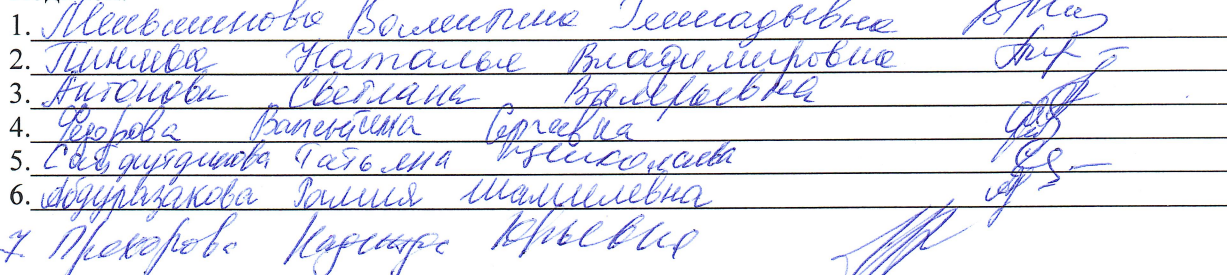 1. Меньшикова Валентина Геннадьевна
2. Пиняева Наталья Владимировна
3. Антонова Светлана Валерьевна
4. Федорова Валентина Сергеевна
5. Сайфутдинова Татьяна Николаевна
6. Абдуразакова Галия Шамилевна
7. Прохорова Надежда Юрьевна